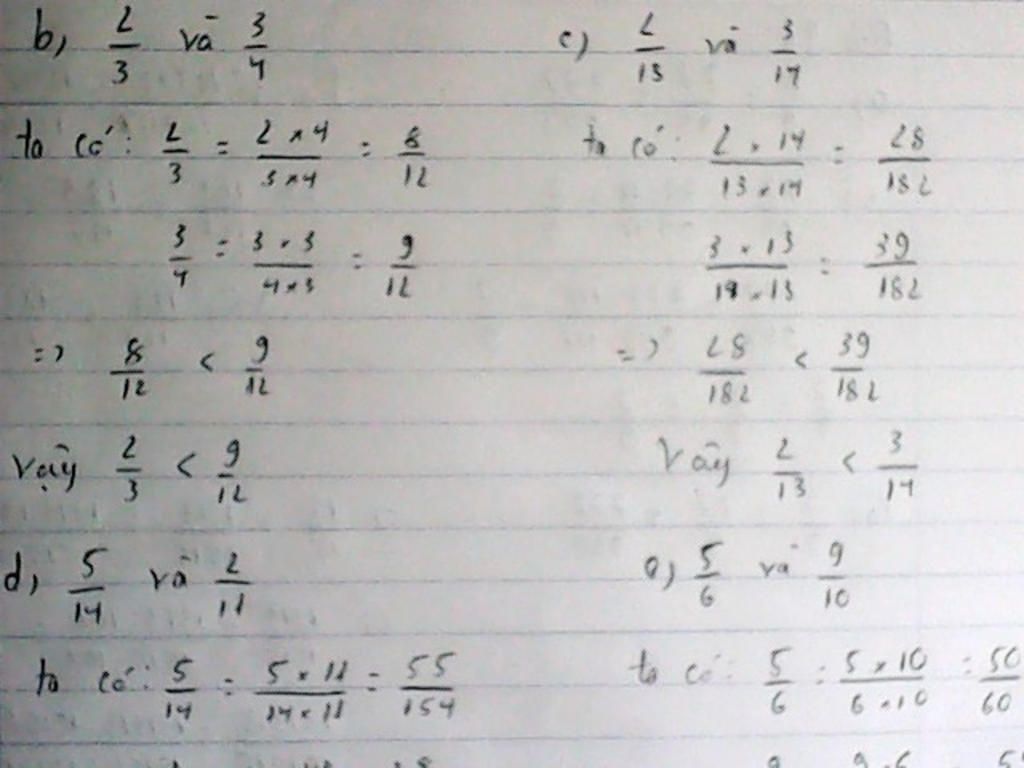 b) 2/3 và 3/4
ta có: 2/3 = 2 × 4 / 3 × 4 = 8/12
3/4 = 3 × 3 / 4 × 3 = 9/12
=> 8/12 < 9/12
Vậy 2/3 < 9/12
c) 2/13 và 3/14
ta có: 2 × 14 / 13 × 14 = 28/182
3 × 13 / 14 × 13 = 39/182
=> 28/182 < 39/182
Vậy 2/13 < 3/14
d) 5/14 và 2/11
ta có: 5/14 = 5 × 11 / 14 × 11 = 55/154
e) 5/6 và 9/10
ta có: 5/6 = 5 × 10 / 6 × 10 = 50/60